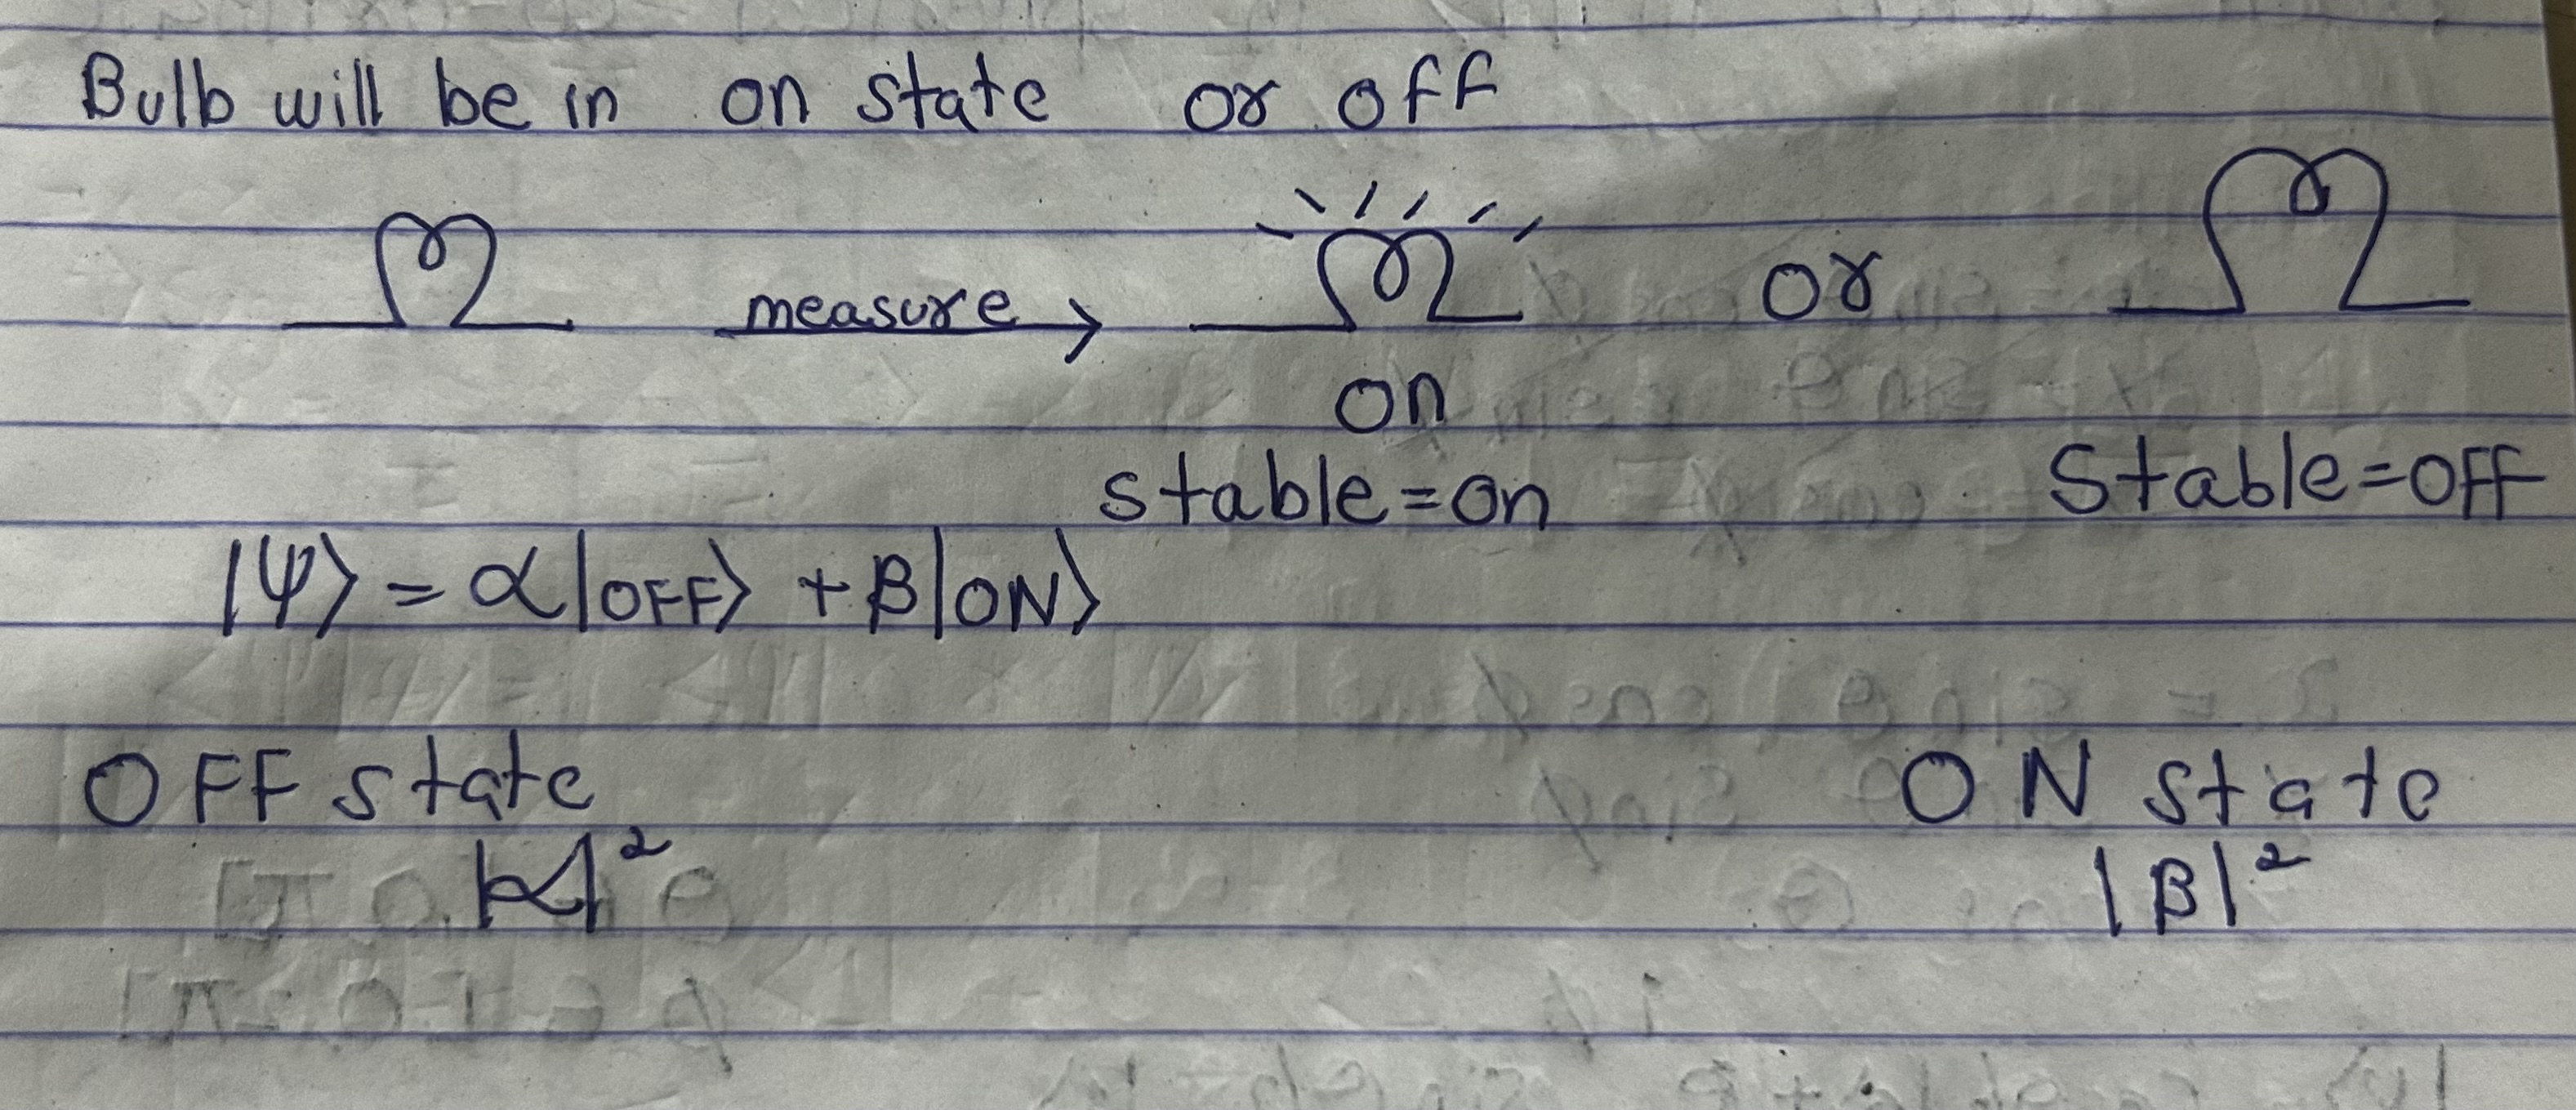 Bulb will be in on state or off
measure or
on
stable=on Stable=OFF
|Ψ⟩ = α|OFF⟩ + β|ON⟩
OFF state ON state
|α|² |β|²